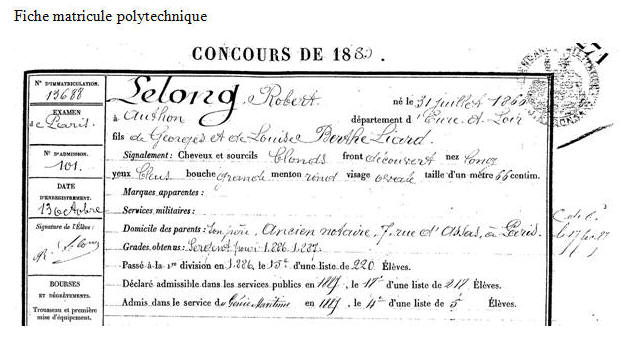 Fiche matricule polytechnique
CONCOURS DE 188
N° D'IMMATRICULATION.
13688
EXAMEN
de Paris.
N° D'ADMISSION.
101.
DATE
D'ENREGISTREMENT.
13 octobre
Signature de l'Élève:
BOURSES
ET DÉGRÈVEMENTS.
Trousseau et première
mise d'équipement.
Lelong, Robert. né le 31 juillet 186
à Authon département d'Eure-et-Loir
fils de Georges et de Louise Berthe Liard.
Signalement: Cheveux et sourcils blonds front découvert nez long
yeux bleus bouche grande menton rond visage ovale taille d'un mètre 66 centim.
Marques apparentes:
Services militaires:
Domicile des parents: son père, Ancien notaire, 7, rue d'Assas, à Paris.
Grades obtenus: Sergent 1886 1887
Passé à la 1re division en 1886, le 15e d'une liste de 220 Élèves.
Déclaré admissible dans les services publics en 1887, le d'une liste de 217 Élèves.
Admis dans le service du Génie Maritime en 1887, le 4e d'une liste de 5 Élèves.